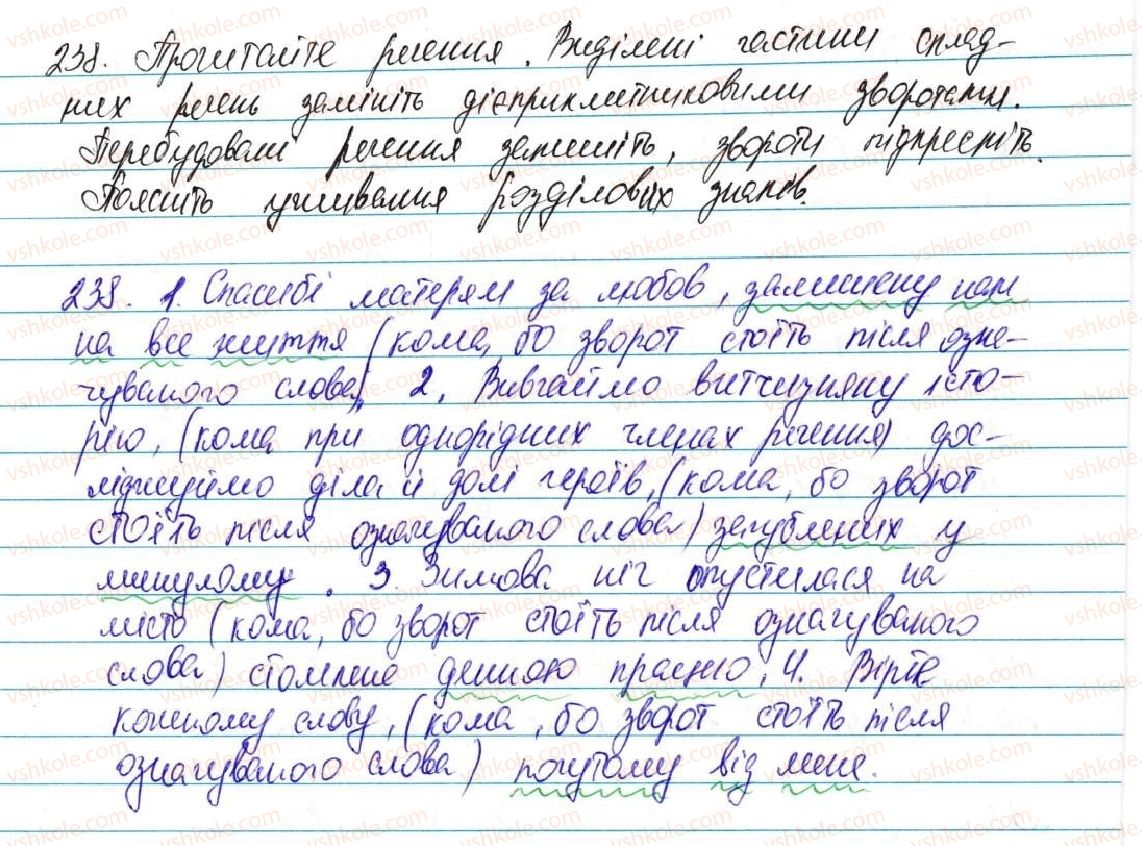 238. Прочитайте речення. Виділені частини склад-
них речень замініть дієприкметниковими зворотами.
Перебудовані речення запишіть, звороти підкресліть.
Поясніть уживання розділових знаків.
238. 1. Спасибі матерям за любов, залишену нам
на все життя (кома, бо зворот стоїть після озна-
чуваного слова). 2. Вивчаймо вітчизняну істо-
рію, (кома при однорідних членах речення) дос-
ліджуймо діла й долі героїв, (кома, бо зворот
стоїть після означуваного слова) загублених у
минулому. 3. Зимова ніч опустилася на
місто (кома, бо зворот стоїть після означуваного
слова) стомлене денною працею. 4. Вірте
кожному слову, (кома, бо зворот стоїть після
означуваного слова) почутому від мене.